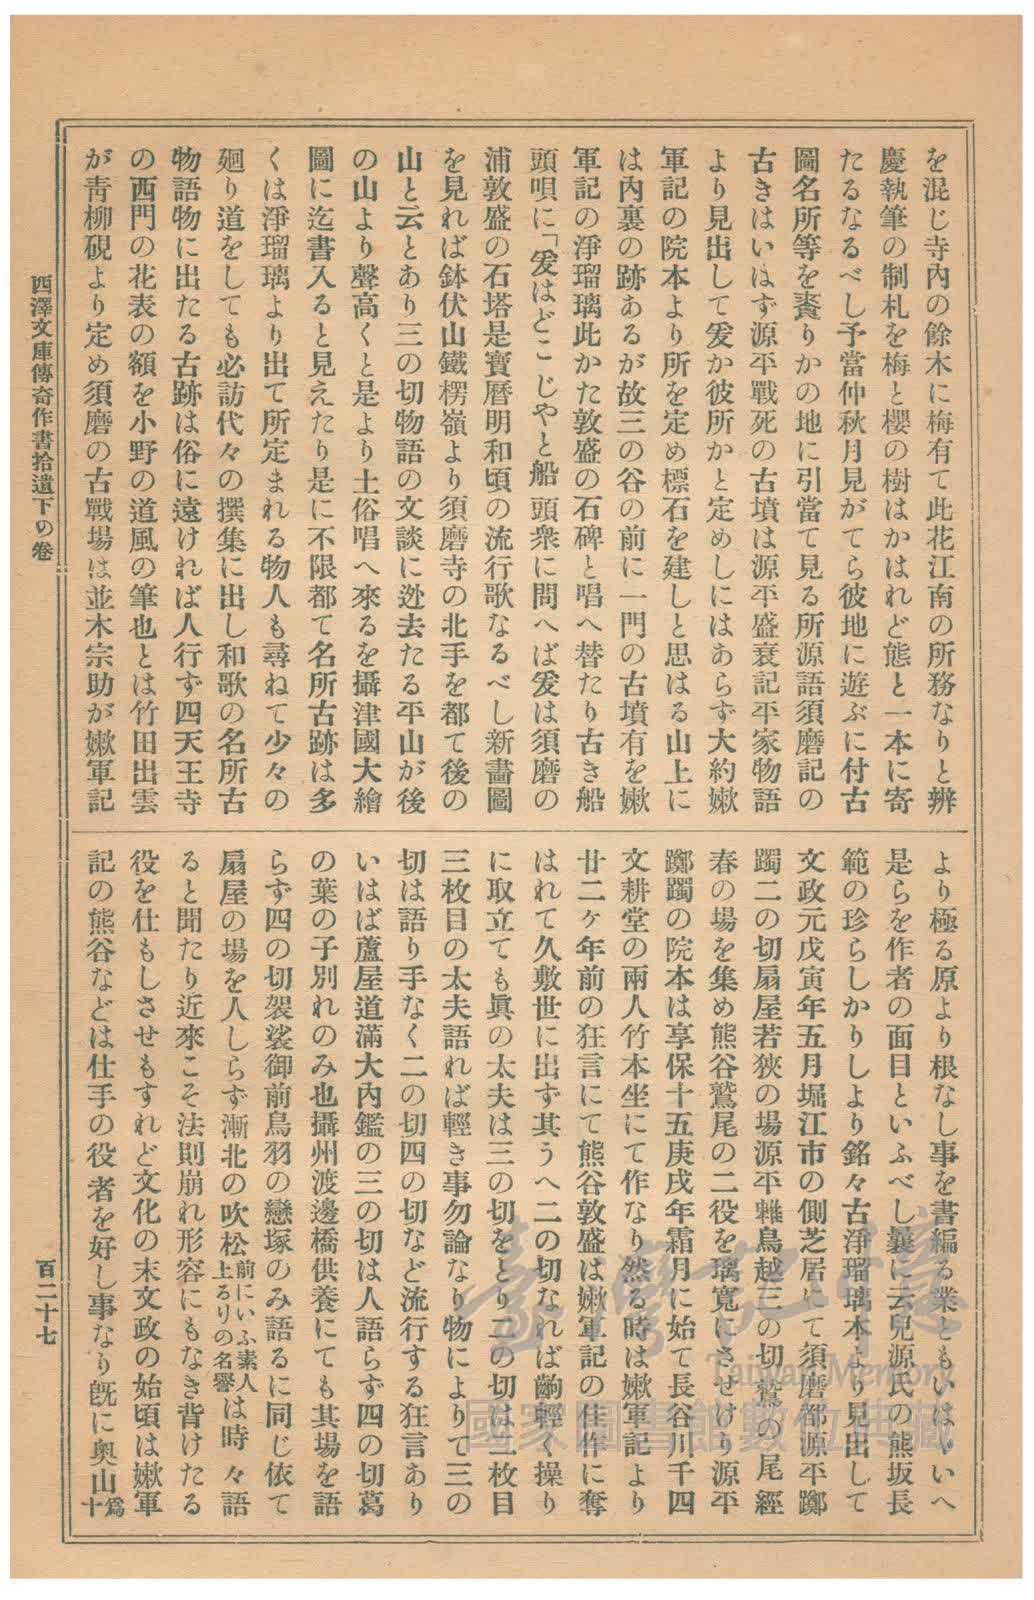 を混じ寺内の餘木に梅有て此花江南の所務なりと辨
慶執筆の制札を梅と櫻の樹はかはれど態と一本に寄
たるなるべし予當仲秋月見がてら彼地に遊ぶに付古
圖名所等を賫りかの地に引當て見る所源語須磨記の
古きはいはず源平戰死の古墳は源平盛衰記平家物語
より見出して爰か彼所かと定めしにはあらず大約嫩
軍記の院本より所を定め標石を建しと思はる山上に
は內裏の跡あるが故三の谷の前に一門の古墳有を嫩
軍記の淨瑠璃此かた敦盛の石碑と唱へ替たり古き船
頭唄に「爰はどこじやと船頭衆に問へば爰は須磨の
浦敦盛の石塔是寶曆明和頃の流行歌なるべし新畵圖
を見れば鉢伏山鐵楞嶺より須磨寺の北手を都て後の
山と云とあり三の切物語の文談に迯去たる平山が後
の山より聲高くと是より土俗唱へ來るを攝津國大繪
圖に迄書入ると見えたり是に不限都て名所古跡は多
くは淨瑠璃より出て所定まれる物人も尋ねて少々の
廻り道をしても必訪代々の撰集に出し和歌の名所古
物語物に出たる古跡は俗に遠ければ人行ず四天王寺
の西門の花表の額を小野の道風の筆也とは竹田出雲
が靑柳硯より定め須磨の古戰場は並木宗助が嫩軍記
より極る原より根なし事を書編る業ともいはゞいへ
是らを作者の面目といふべし曩に云兒源氏の熊坂長
範の珍らしかりしより銘々古淨瑠璃本より見出して
文政元戊寅年五月堀江市の側芝居にて須磨都源平躑
躅二の切扇屋若狹の場源平雛鳥越三の切鷲の尾經
春の場を集め熊谷鷲尾の二役を璃寬にさせけり源平
躑躅の院本は享保十五庚戌年霜月に始て長谷川千四
文耕堂の兩人竹本坐にて作なり然る時は嫩軍記より
廿二ヶ年前の狂言にて熊谷敦盛は嫩軍記の佳作に奪
はれて久敷世に出ず其うへ二の切なれば齣輕く操り
に取立ても眞の太夫は三の切をとり二の切は二枚目
三枚目の太夫語れば輕き事勿論なり物によりて三の
切は語り手なく二の切四の切など流行する狂言あり
いはば蘆屋道滿大內鑑の三の切は人語らず四の切葛
の葉の子別れのみ也攝州渡邊橋供養にても其場を語
らず四の切袈裟御前鳥羽の戀塚のみ語るに同じ依て
扇屋の場を人しらず漸北の吹松前にいふ素人上るりの名譽は時々語
ると聞たり近來こそ法則崩れ形容にもなき背けたる
役を仕もしさせもすれど文化の末文政の始頃は嫩軍
記の熊谷などは仕手の役者を好し事なり旣に奧山爲十
西澤文庫傳奇作書拾遺下の卷
百二十七
臺灣記憶
Taiwan Memory
國家圖書館數位典藏